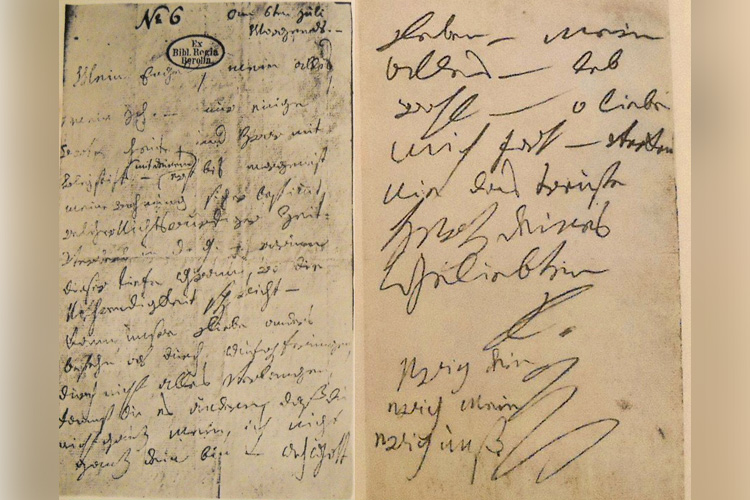 No 6 am 6ten Juli
Morgends. –
Ex
Bibl. Regia
Berolin.
Mein Engel, mein alles
mein Ich. – nur einige
Worte heute, und zwar mit
Bleystift – (mit deinem) erst bis morgen ist
meine Wohnung sicher bestimmt,
welcher Nichtswürdiger Zeit-
verderb in d. g. – warum
dieser tiefe Gram, wo die
Nothwendigkeit spricht –
Kann unsre Liebe anders
bestehn als durch Aufopferungen,
durch nicht alles verlangen,
kannst du es ändern, daß du
nicht ganz mein, ich nicht
ganz dein bin – Ach Gott
Leben – mein
alles – leb
wohl – o liebe
mich fort – verken
nie das treuste
Herz deines
Geliebten
L.
ewig dein
ewig mein
ewig unß